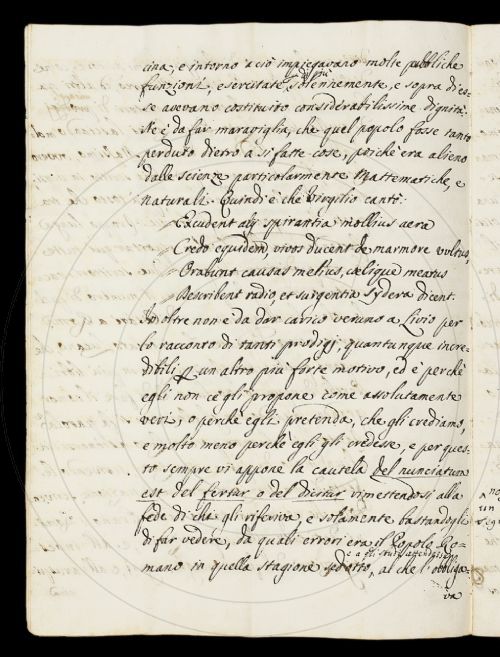 cina, e intorno a ciò impiegavano molte pubbliche
funzioni, esercitate solennemente, e sopra di es-
se avevano costituito considerabilissime dignità.
Ne è da far maraviglia, che quel popolo fosse tanto
perduto dietro a si fatte cose, poichè era alieno
dalle scienze particolarmente Mattematiche, e
naturali. Quindi è che Virgilio cantò:
Excudent alij spirantia mollius aera
Credo equidem, vivos ducent de marmore vultus,
Orabunt causas melius, cœlique meatus
Describent radio, et surgentia sydera dicent.
Inoltre non è da dar carico veruno a Livio per
lo racconto di tanti prodigj quantunque incre-
dibili per un altro più forte motivo, ed è perchè
egli non ce gli propone come assolutamente
veri, o perchè egli pretenda, che gli crediamo,
e molto meno perchè egli gli credese, e per ques-
to sempre vi appone la cautela del nunciatum
est del fertur o del dicitur rimettendosi alla
fede di chi gli riferiva, e solamente bastandogli
di far vedere, da quali errori era il Popolo Ro-
mano in quella stagione sedotto, al che l'obbliga-
va